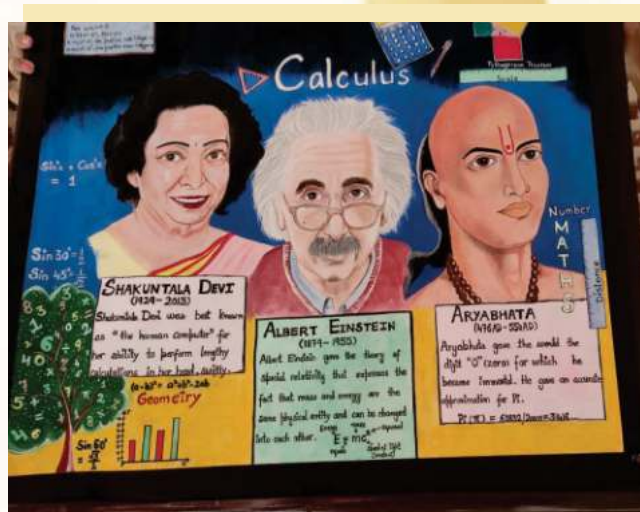 Calculus
Pythagoras Theorem
Scale
Sin²x + Cos²x
= 1
Sin 30° =
Sin 45°
Number
MATHS
Distance
SHAKUNTALA DEVI
(1929-2013)
Shakuntala Devi was best known
as "the human computer" for
her ability to perform lengthy
calculations in her head, swiftly.
ALBERT EINSTEIN
(1879-1955)
Albert Einstein gave the theory of
special relativity that expresses the
fact that mass and energy are the
same physical entity and can be changed
into each other.
Energy
ARYABHATA
(476AD-550AD)
Aryabhata gave the world the
digit "0" (zero) for which he
became immortal. He gave an accurate
approximation for Pi.
(a-b)² = a²+b²-2ab
Geometry
Sin 60°